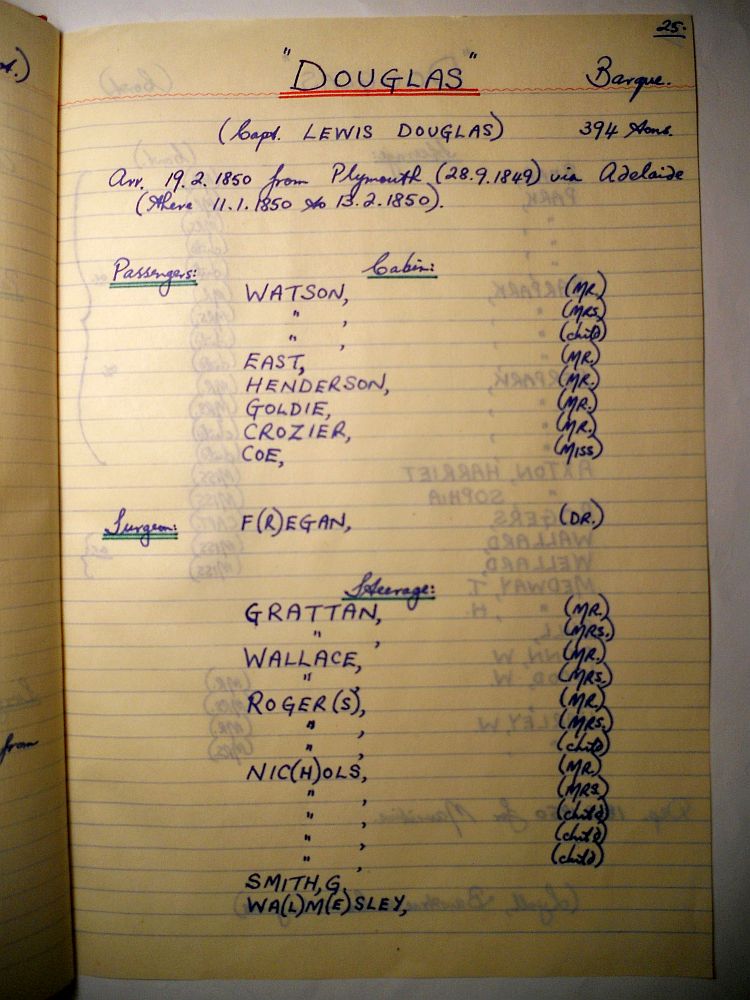 25.
"DOUGLAS" Barque.
(Capt. LEWIS DOUGLAS) 394 tons.
Arr. 19.2.1850 from Plymouth (28.9.1849) via Adelaide
(there 11.1.1850 to 13.2.1850).
Passengers: Cabin:
WATSON, (MR.)
" , (MRS.)
" , (child)
EAST, (MR.)
HENDERSON, (MR.)
GOLDIE, (MR.)
CROZIER, (MR.)
COE, (MISS)
Surgeon: F(R)EGAN, (DR.)
Steerage:
GRATTAN, (MR.)
" , (MRS.)
WALLACE, (MR.)
" , (MRS.)
ROGER(S), (MR.)
" , (MRS.)
" , (child)
NIC(H)OLS, (MR.)
" , (MRS.)
" , (child)
" , (child)
" , (child)
SMITH, G.
WA(L)M(E)SLEY,
from